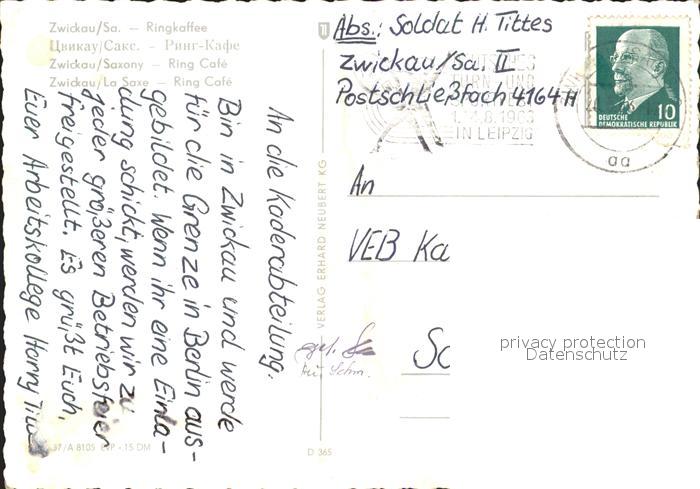 Zwickau/Sa. – Ringkaffee
Цвикау/Сакс. – Ринг-Кафе
Zwickau/Saxony – Ring Café
Zwickau/La Saxe – Ring Café
An die Kaderabteilung.
Bin in Zwickau und werde
für die Grenze in Berlin aus-
gebildet. Wenn ihr eine Einla-
dung schickt, werden wir zu
jeder größeren Betriebsfeier
freigestellt. Es grüßt Euch,
Euer Arbeitskollege Harry
37/A 8105 EVP -.15 DM
VERLAG ERHARD NEUBERT KG
D 365
Abs.: Soldat H. Tittes
Zwickau/Sa. II
Postschließfach 4164 H
TURN- UND
8.1963
IN LEIPZIG
10
DEUTSCHE
DEMOKRATISCHE REPUBLIK
aa
An
VEB Ka
Sc
gel.
privacy protection
Datenschutz